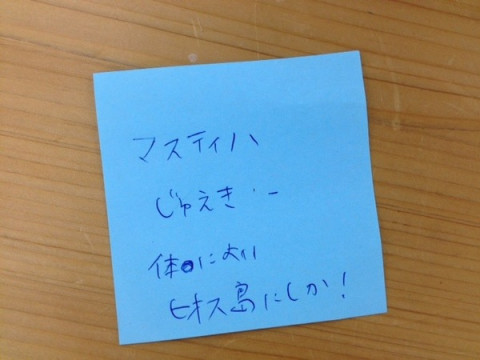 マスティハ
じゅえき・ー
体によい
ヒオス島にしか!